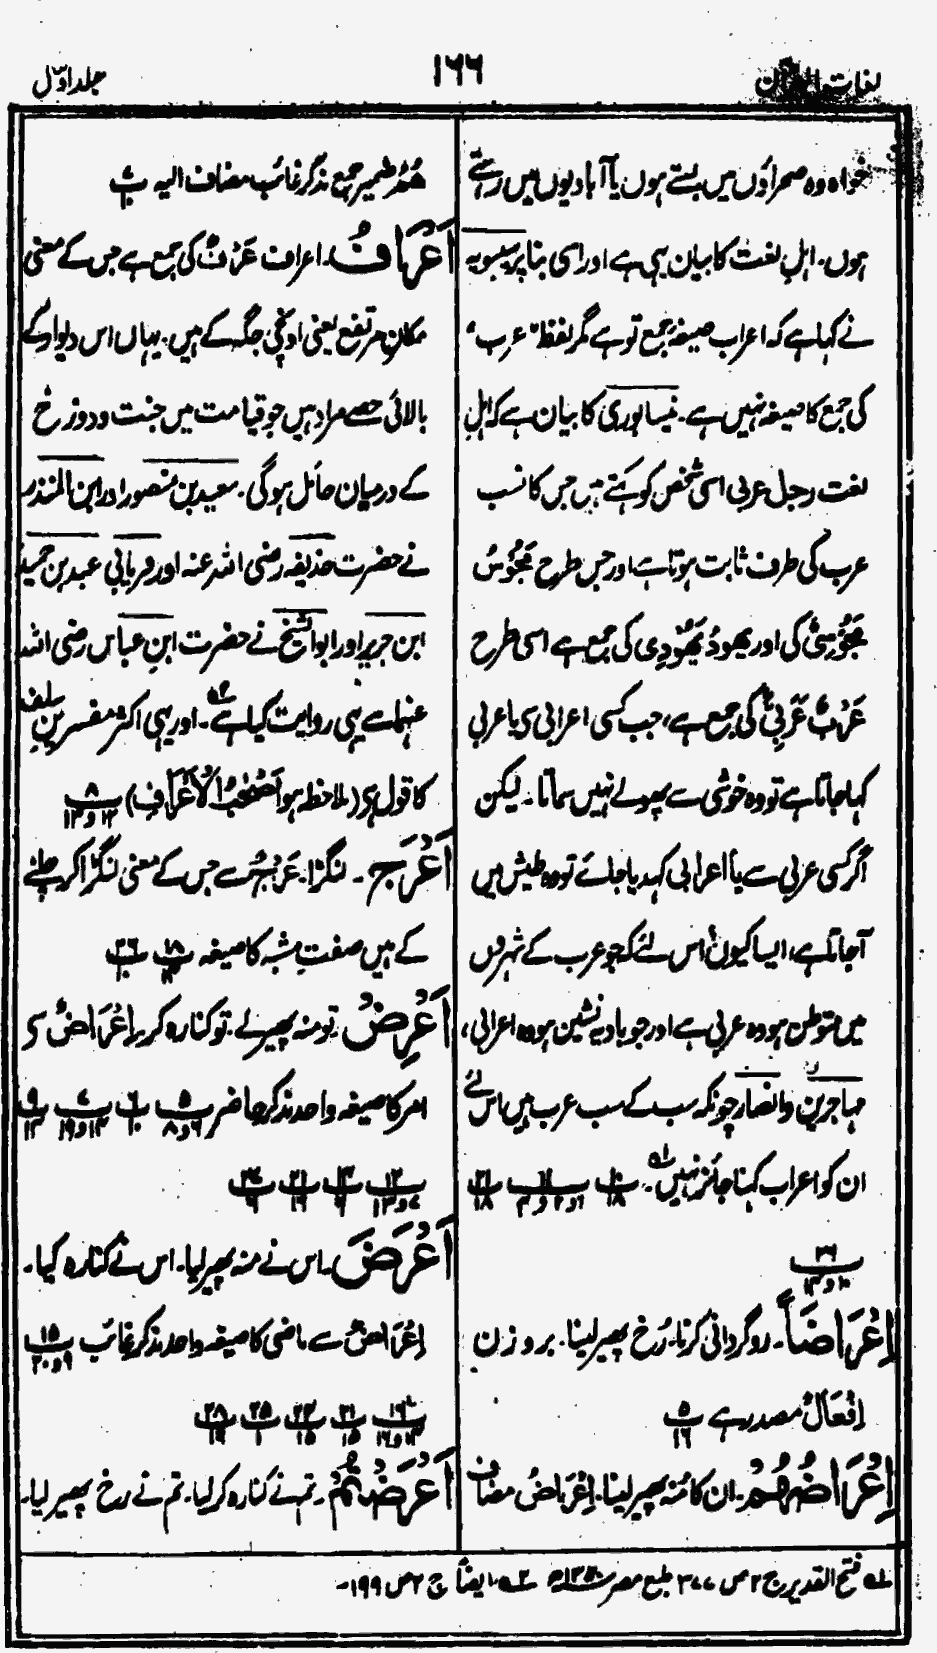 لغات القرآن
۱۶۶
جلد اوّل
خواہ وہ صحراؤں میں بستے ہوں یا آبادیوں میں رہتے
ہوں۔ اہلِ لغت کا بیان یہی ہے اور اسی بنا پر سیبویہ
نے کہا ہے کہ اعراب صیغۂ جمع تو ہے مگر لفظ "عرب"
کی جمع کا صیغہ نہیں ہے۔ نیساپوری کا بیان ہے کہ اہلِ
لغت رجل عربی اسی شخص کو کہتے ہیں جس کا نسب
عرب کی طرف ثابت ہوتا ہے اور جس طرح مَجُوْسٌ
مَجُوْسِیٌّ کی اور یھودٌ یَھُوْدِی کی جمع ہے اسی طرح
عَرَبٌ عَرَبِیٌّ کی جمع ہے، جب کسی اعرابی کو یا عربی
کہا جاتا ہے تو وہ خوشی سے پھولے نہیں سماتا۔ لیکن
اگر کسی عربی سے یا اعرابی کہدیا جائے تو وہ طیش میں
آجاتا ہے، ایسا کیوں؟ اس لئے کہ جو عرب کے شہروں
میں متوطن ہو وہ عربی ہے اور جو بادیہ نشین ہو وہ اعرابی،
مہاجرین وانصار چونکہ سب کے سب عرب ہیں اس لئے
ان کو اعراب کہنا جائز نہیں۔
اِعْرَاضًا۔ روگردانی کرنا۔ رُخ پھیر لینا۔ بر وزن
اِفْعَالٌ مصدر ہے پ ۵ ۱۶
اِعْرَاضُهُمْ۔ ان کا مُنہ پھیر لینا۔ اِعْرَاضُ مضاف
هُمْ ضمیر جمع مذکر غائب مضاف الیہ
اَعْرَافُ۔ اعراف عَرْفٌ کی جمع ہے جس کے معنی
مکانِ مرتفع یعنی اونچی جگہ کے ہیں۔ یہاں اس دیوار کے
بالائی حصے مراد ہیں جو قیامت میں جنت و دوزخ
کے درمیان حائل ہوگی۔ سعید بن منصور اور ابن المنذر
نے حضرت حذیفہ رضی اللہ عنہ اور فریابی عبد بن حمید
ابن جریر اور ابوالشیخ نے حضرت ابنِ عباس رضی اللہ
عنہما سے یہی روایت کیا ہے۔ اور یہی اکثر مفسرینِ سلف
کا قول ہے (ملاحظہ ہو اَصْحٰبُ الْاَعْرَافِ) پ ۸ ۱۲ و ۱۳
اَعْرَج۔ لنگڑا۔ عَرَجٌ سے جس کے معنی لنگڑا کر چلنے
کے ہیں صفتِ مشبہ کا صیغہ
اَعْرِضْ۔ تو منہ پھیر لے۔ تو کنارہ کر۔ اِعْرَاضٌ سے
امر کا صیغہ واحد مذکر حاضر
اَعْرَضَ۔ اس نے منہ پھیر لیا۔ اس نے کنارہ کیا۔
اِعْرَاضٌ سے ماضی کا صیغہ واحد مذکر غائب پ ۱۵ ۹ و ۲۰
اَعْرَضْتُمْ۔ تم نے کنارہ کر لیا۔ تم نے رخ پھیر لیا۔
لہ فتح القدیر ج ۲ ص ۳۷۷ طبع مصر ۱۳۵۰ھ ۲ہ ایضاً ج ۲ ص ۱۹۹۔